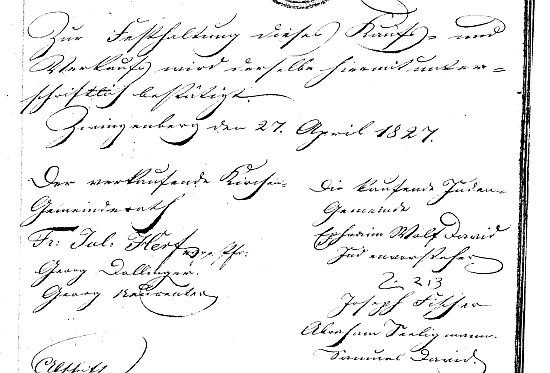 Zur Festhaltung dieses Kaufs- und
Verkaufs wird derselbe hiermit unter=
schriftlich bestätigt.
Zwingenberg den 27. April 1827.
Der verkaufende Kirchen-
Gemeinderath
Fr: Jal: Herf Pfr:
Georg Dallinger.
Georg
Die kaufende Juden-
Gemeinde
Ephraim Wolf David
Judenvorsteher
Joseph Fischer
Abraham Seeligmann.
Samuel David.